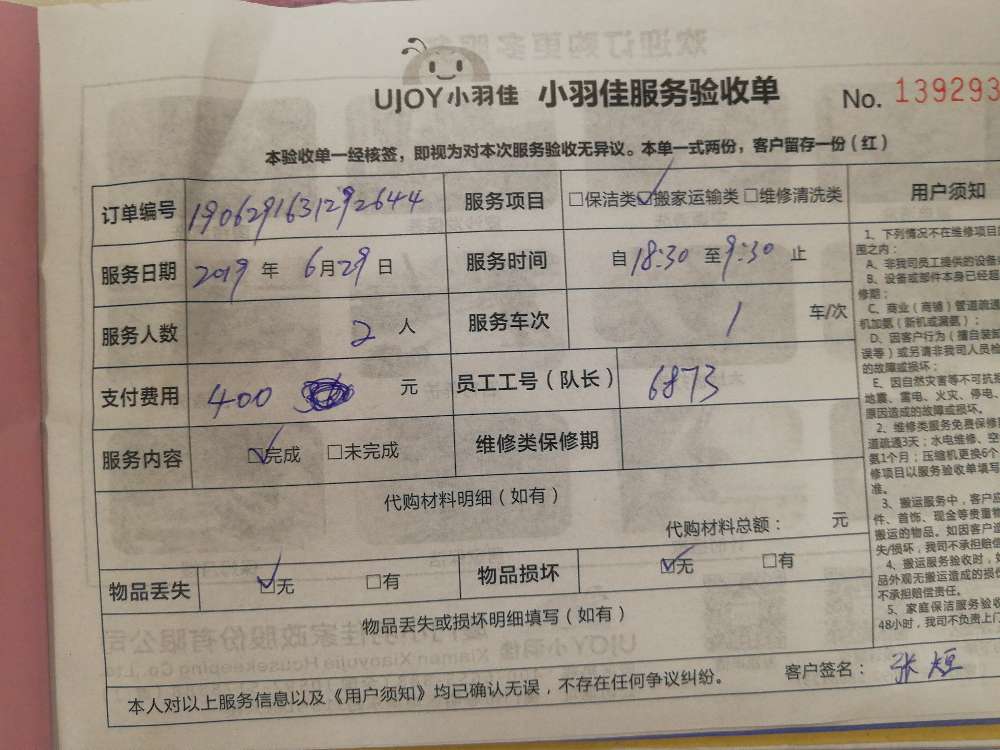 UJOY小羽佳 小羽佳服务验收单 No. 139293
本验收单一经核签，即视为对本次服务验收无异议。本单一式两份，客户留存一份（红）
订单编号 1906291631292644 服务项目 □保洁类 ☑搬家运输类 □维修清洗类
服务日期 2019 年 6月29日 服务时间 自18:30 至9:30 止
服务人数 2 人 服务车次 1 车/次
支付费用 400 元 员工工号（队长） 6873
服务内容 ☑完成 □未完成 维修类保修期
代购材料明细（如有）
代购材料总额： 元
物品丢失 ☑无 □有 物品损坏 ☑无 □有
物品丢失或损坏明细填写（如有）
本人对以上服务信息以及《用户须知》均已确认无误，不存在任何争议纠纷。 客户签名： 张恒
用户须知
1、下列情况不在维修项目
围之内：
A、非我司员工提供的设备
B、设备或部件本身已经超
修期；
C、商业（商铺）管道疏通
机加氨（新机或漏氨）；
D、因客户行为（擅自装卸
误等）或另请非我司人员检
的故障或损坏；
E、因自然灾害等不可抗
地震、雷电、火灾、停电、
原因造成的故障或损坏。
2、维修类服务免费保修
道疏通3天；水电维修、空
氨1个月；压缩机更换6个
修项目以服务验收单填写
准。
3、搬运服务中，客户应
件、首饰、现金等贵重
搬运的物品。如因客户
失/损坏，我司不承担赔偿
4、搬运服务验收时，
品外观无搬运造成的损
不承担赔偿责任。
5、家庭保洁服务验收
48小时，我司不负责上门